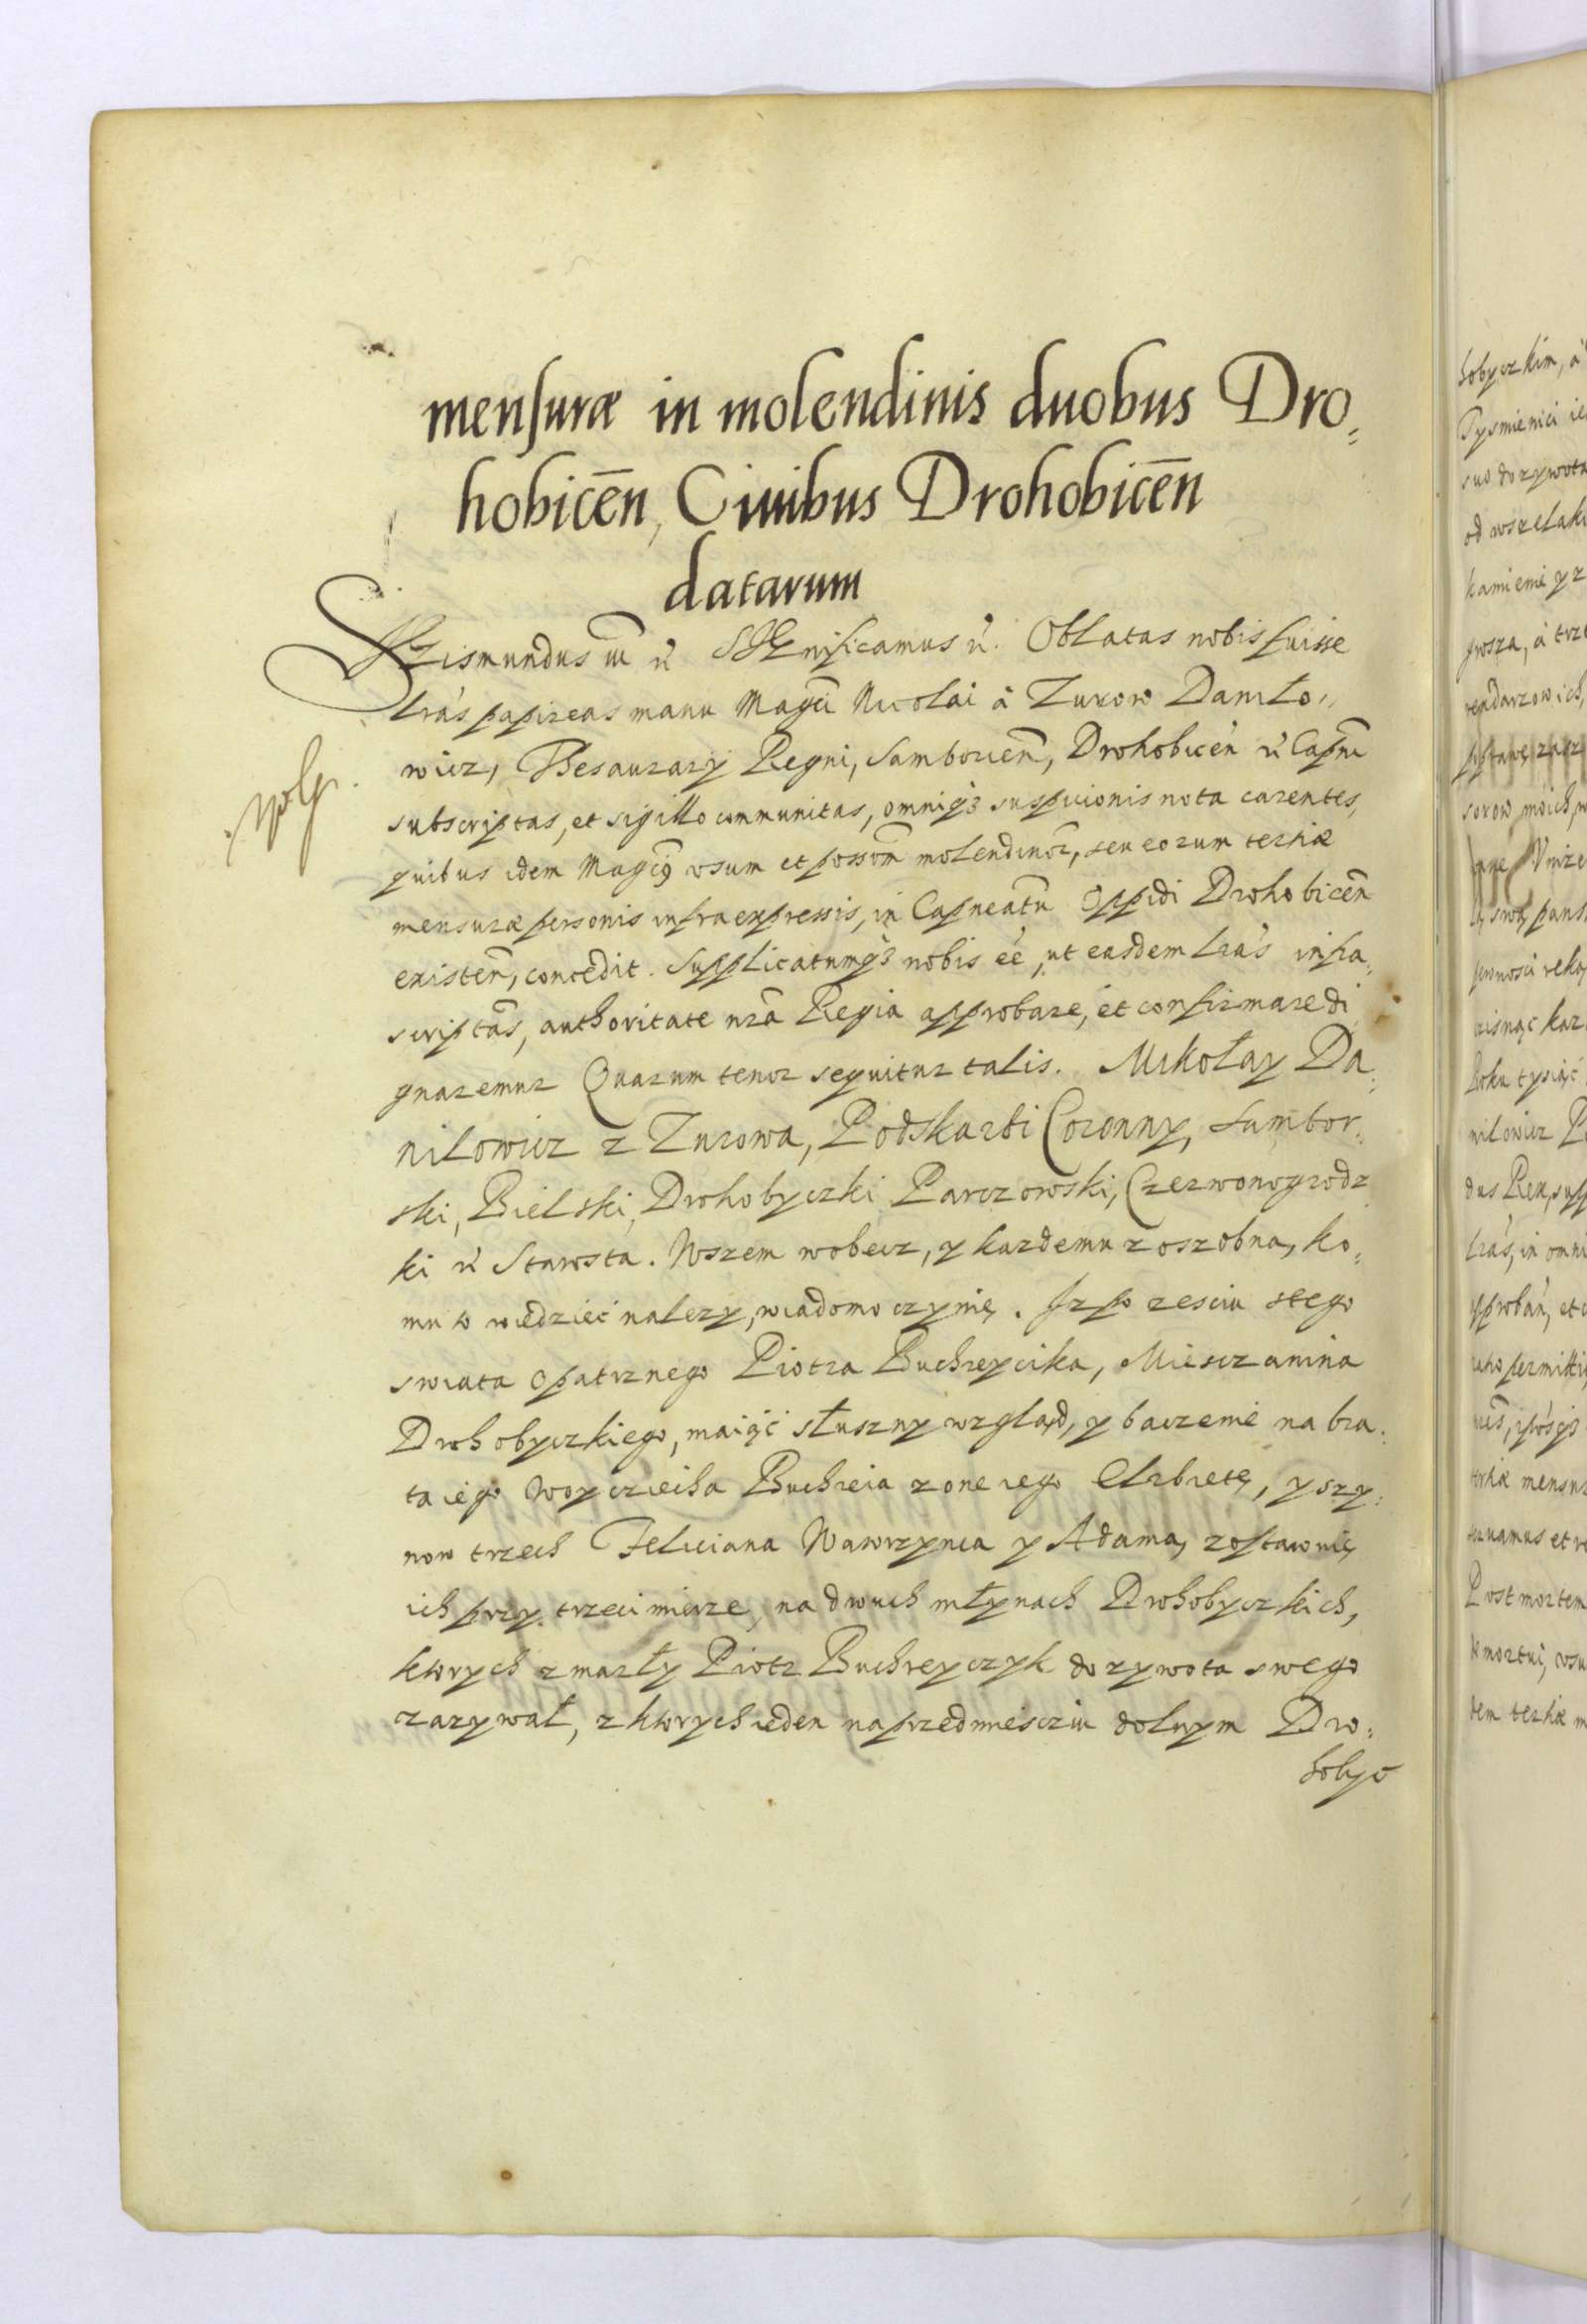 mensuræ in molendinis duobus Dro,
hobicen̄, Ciuibus Drohobicen̄
datarum
Sigismundus iii etc Significamus etc. Oblatas nobis fuisse
lrás papireas manu Magci Nicolai à Zurow Daniło,,
wicz, Thesaurarÿ Regni, Samborien̄, Drohobicen̄ etc Capnei
subscriptas, et sigillo communitas, omniq3 suspicionis nota carentes,
quibus idem Magcus vsum et possom̄ molendinor̄, seu eorum tertiæ
mensuræ personis infra expressis, in Capneatu Oppidi Drohobicen̄
existen̄, concedit. Supplicatumq3 nobis ée, ut easdem lrás infra,
scriptas, authoritate nr̄a Regia approbare, et confirmare di
gnaremur Quarum tenor sequitur talis. Mikołay Da,
nilowicz z Zurowa, Podskarbi Coronny, Sambor,
ski, Bielski, Drohobyczki Parczowski, Czerwonogrodz
ki etc Starosta. Wszem wobecz, y kazdemu z oszobna, ko,
mu to wiedzieć nalezy, wiadomo czynię. Jz po zesciu stego
swiata opatrznego Piotra Buchreycika, Miesczanina
Drohobyczkiego, maiąć słuszny wzgląd, y baczenie na bra,
ta iego Woyciecha Buchreia zone iego Elzbietę, y szy,
now trzech Feliciana Wawrzynca y Adama, zostawuię
ich przy trzeci mierze, na dwuch młynach Drohobyczkich,
ktorych zmarły Piotr Buchreyczyk do zywota swego
zazywał, z ktorych ieden na przedmiesciu dolnym Dro,
hobyc
hobyczkim, à
Tysmienici ie
suo dozywota
od wszelaki
kamieni y z
grosza, à trze
rendarzowich,
sorow moich,
swą pans
Roku tysiąć
nilowicz P
dus Rex, sup
lrás, in omni
approban, et c
tertiæ mensur
Post mortem
demortui, vsu
dem tertiæ m